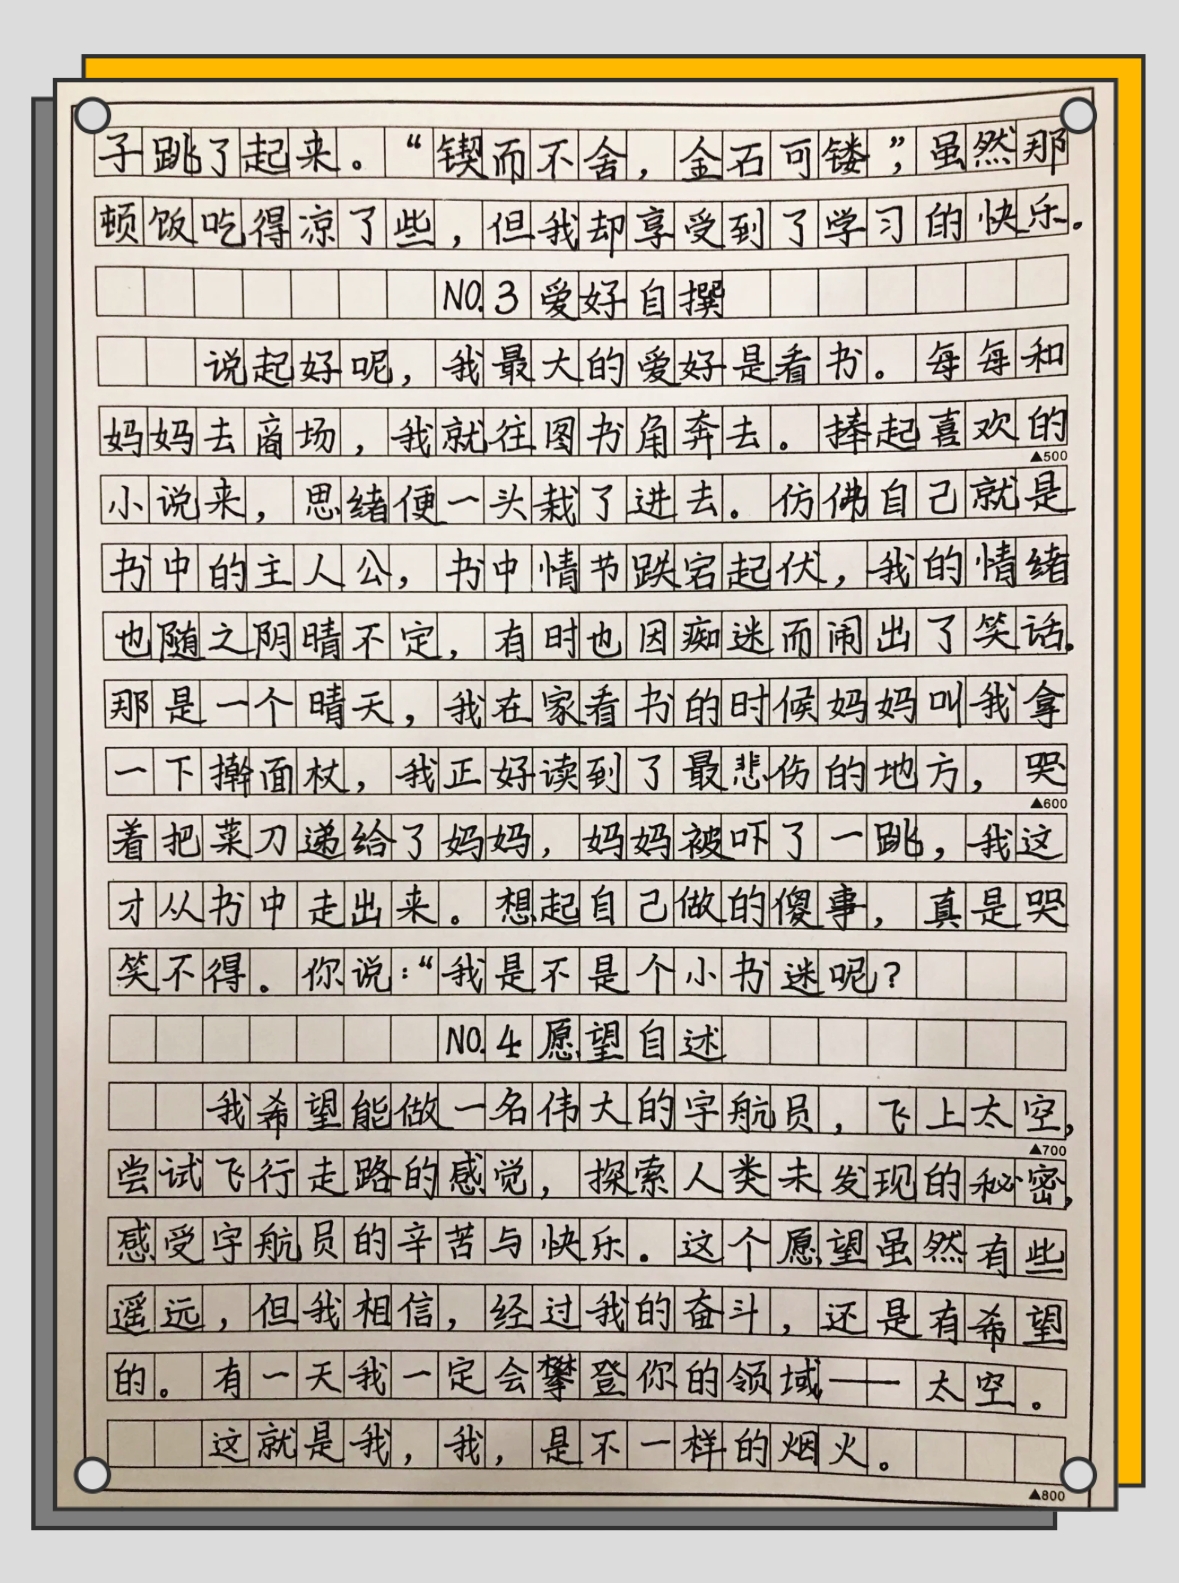 子跳了起来。“锲而不舍，金石可镂”，虽然那
顿饭吃得凉了些，但我却享受到了学习的快乐。
NO.3爱好自撰
说起好呢，我最大的爱好是看书。每每和
妈妈去商场，我就往图书角奔去。捧起喜欢的
▲500
小说来，思绪便一头栽了进去。仿佛自己就是
书中的主人公，书中情节跌宕起伏，我的情绪
也随之阴晴不定，有时也因痴迷而闹出了笑话。
那是一个晴天，我在家看书的时候妈妈叫我拿
一下擀面杖，我正好读到了最悲伤的地方，哭
▲600
着把菜刀递给了妈妈，妈妈被吓了一跳，我这
才从书中走出来。想起自己做的傻事，真是哭
笑不得。你说：“我是不是个小书迷呢？
NO.4愿望自述
我希望能做一名伟大的宇航员，飞上太空，
▲700
尝试飞行走路的感觉，探索人类未发现的秘密，
感受宇航员的辛苦与快乐。这个愿望虽然有些
遥远，但我相信，经过我的奋斗，还是有希望
的。有一天我一定会攀登你的领域——太空。
这就是我，我，是不一样的烟火。
▲800